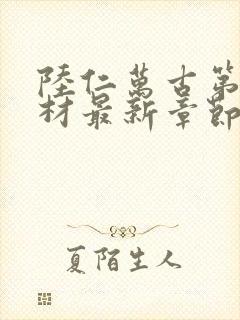 陸仁萬古第
材最新章節
夏陌生人